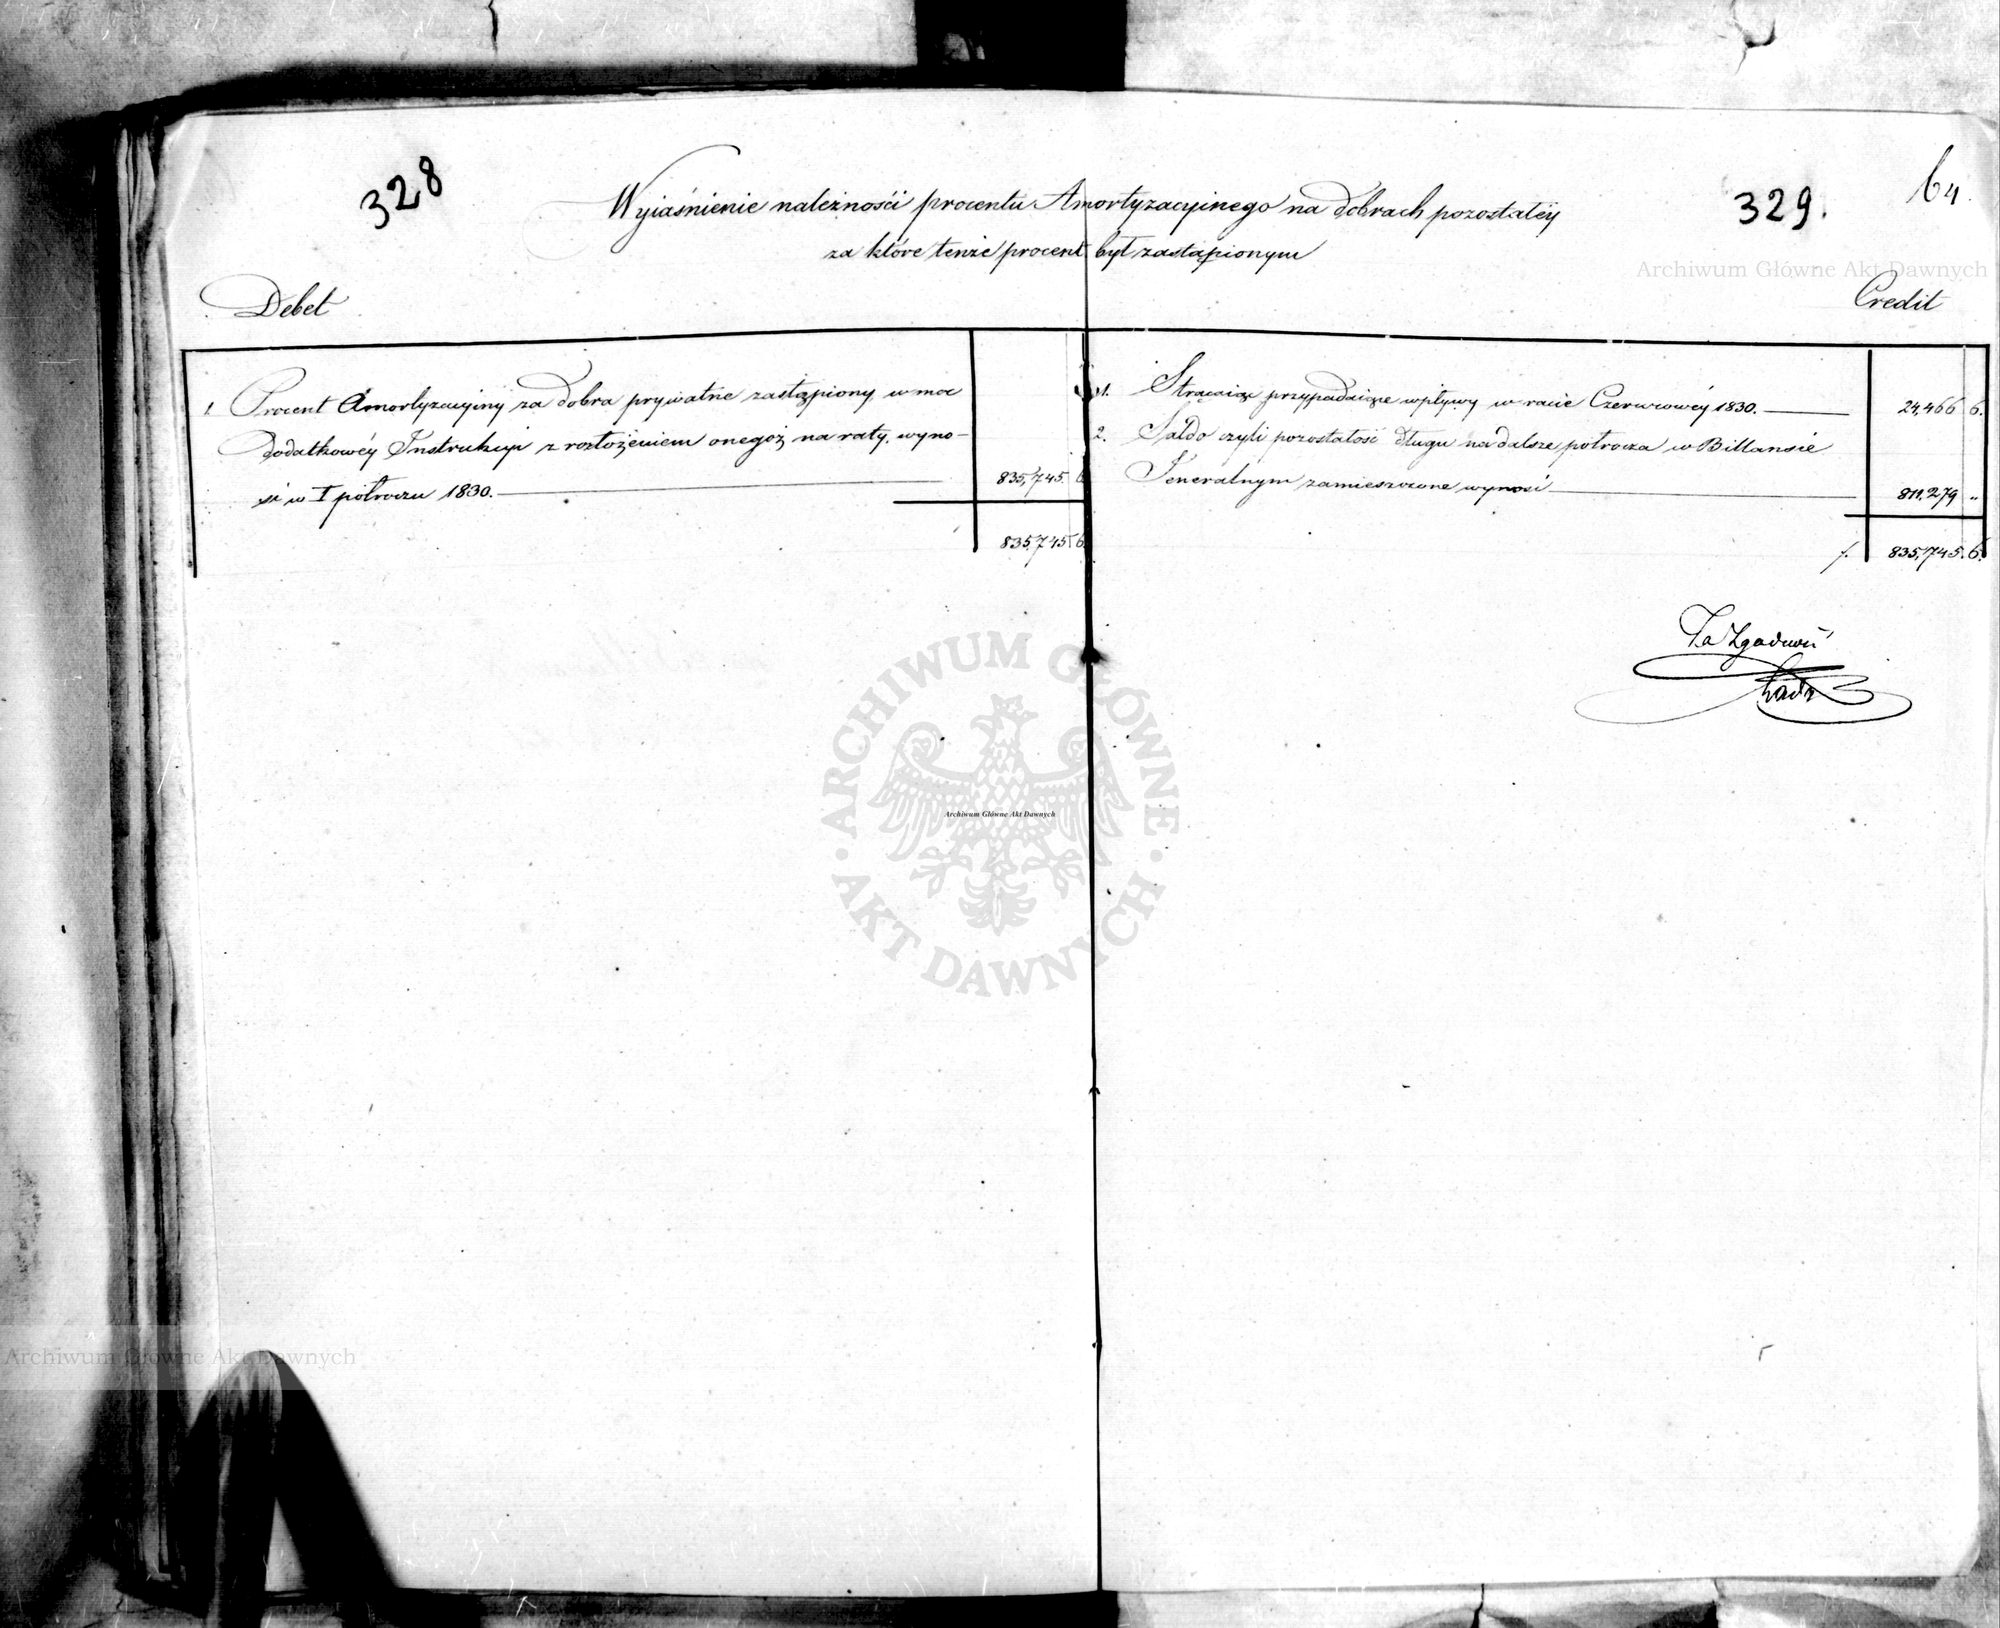 328
329.
64.
Wyiaśnienie należności procentu Amortyzacyinego na dobrach pozostałéy
za które tenże procent był zastąpionym
Archiwum Główne Akt Dawnych
Debet
Credit
1. Procent Amortyzacyiny za dobra prywatne zastąpiony w moc
dodatkowéy Instrukcyi z rozłożeniem onegoż na raty, wyno-
si w I półroczu 1830. 835,745. 6
835,745 6
1. Strącaiąc przypadaiące wpływy w racie Czerwcowéy 1830. 24,466 6.
2. Saldo czyli pozostałość długu na dalsze półrocza w Billansie
Generalnym zamieszczone wynosi 811,279 „
f. 835,745. 6.
Za Zgodność
ARCHIWUM GŁÓWNE
AKT DAWNYCH
Archiwum Główne Akt Dawnych
Archiwum Główne Akt Dawnych